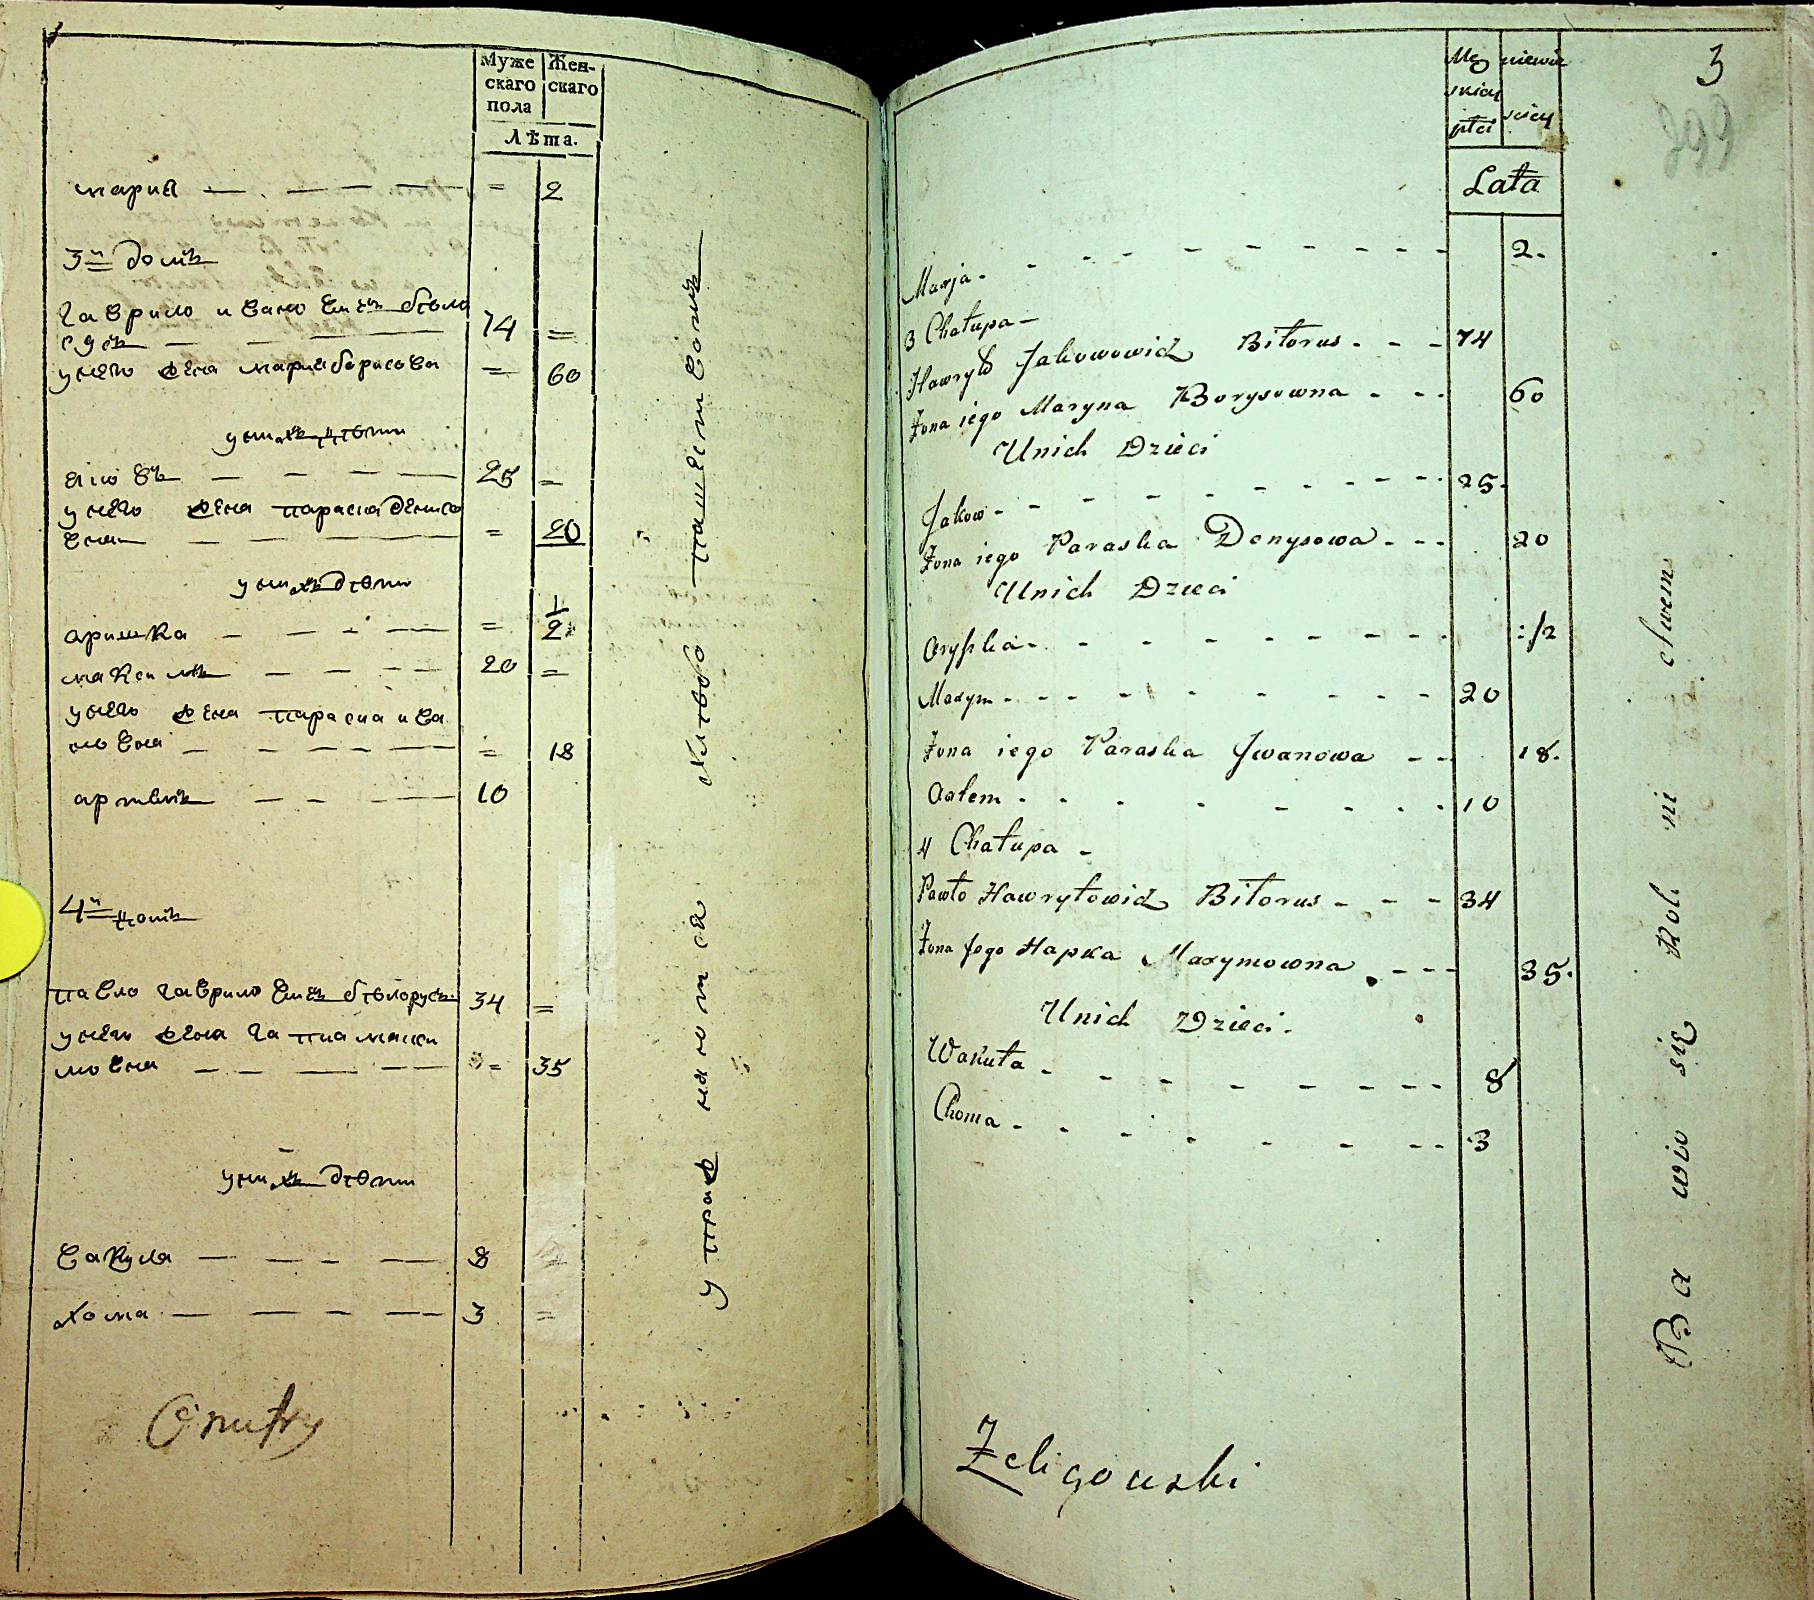 Муже Жен-
скаго скаго
пола
Лѣта.
мария = 2
3й домъ
гаврило иванов ... бѣло
русъ 74 =
унего жена мария борисова = 60
унихъ дѣти
яковъ 25 =
унего жена параска дениso
вна = 20
унихъ дѣти
аришка = 1/2
максимъ 20 =
унего жена параска ива
новна = 18
артемъ 10
4й домъ
павло гаврилович бѣлорусъ 34 =
унего жена гапка макси
мовна = 35
унихъ дѣти
вакула 8
хома 3 =
упраж няются хлѣбо пашеством
3
399
Męz niewie
skiey sciey
płci
Lata
Marja 2.
3 Chałupa
Hawryło Jakowowicz Biłorus 74
Żona iego Maryna Borysowna 60
Unich Dzieci
Jakow 25.
Żona iego Paraska Denysowa 20
Unich Dzieci
Aryszka 1/2
Maxym 20
Żona iego Paraska Jwanowa 18.
Artem 10
4 Chałupa
Pawło Hawryłowicz Biłorus 34
Żona Jego Hapka Maxymowna 35.
Unich Dzieci.
Wakuła 8
Choma 3
Ba wio się Rol ni ctwem
Żeligowski